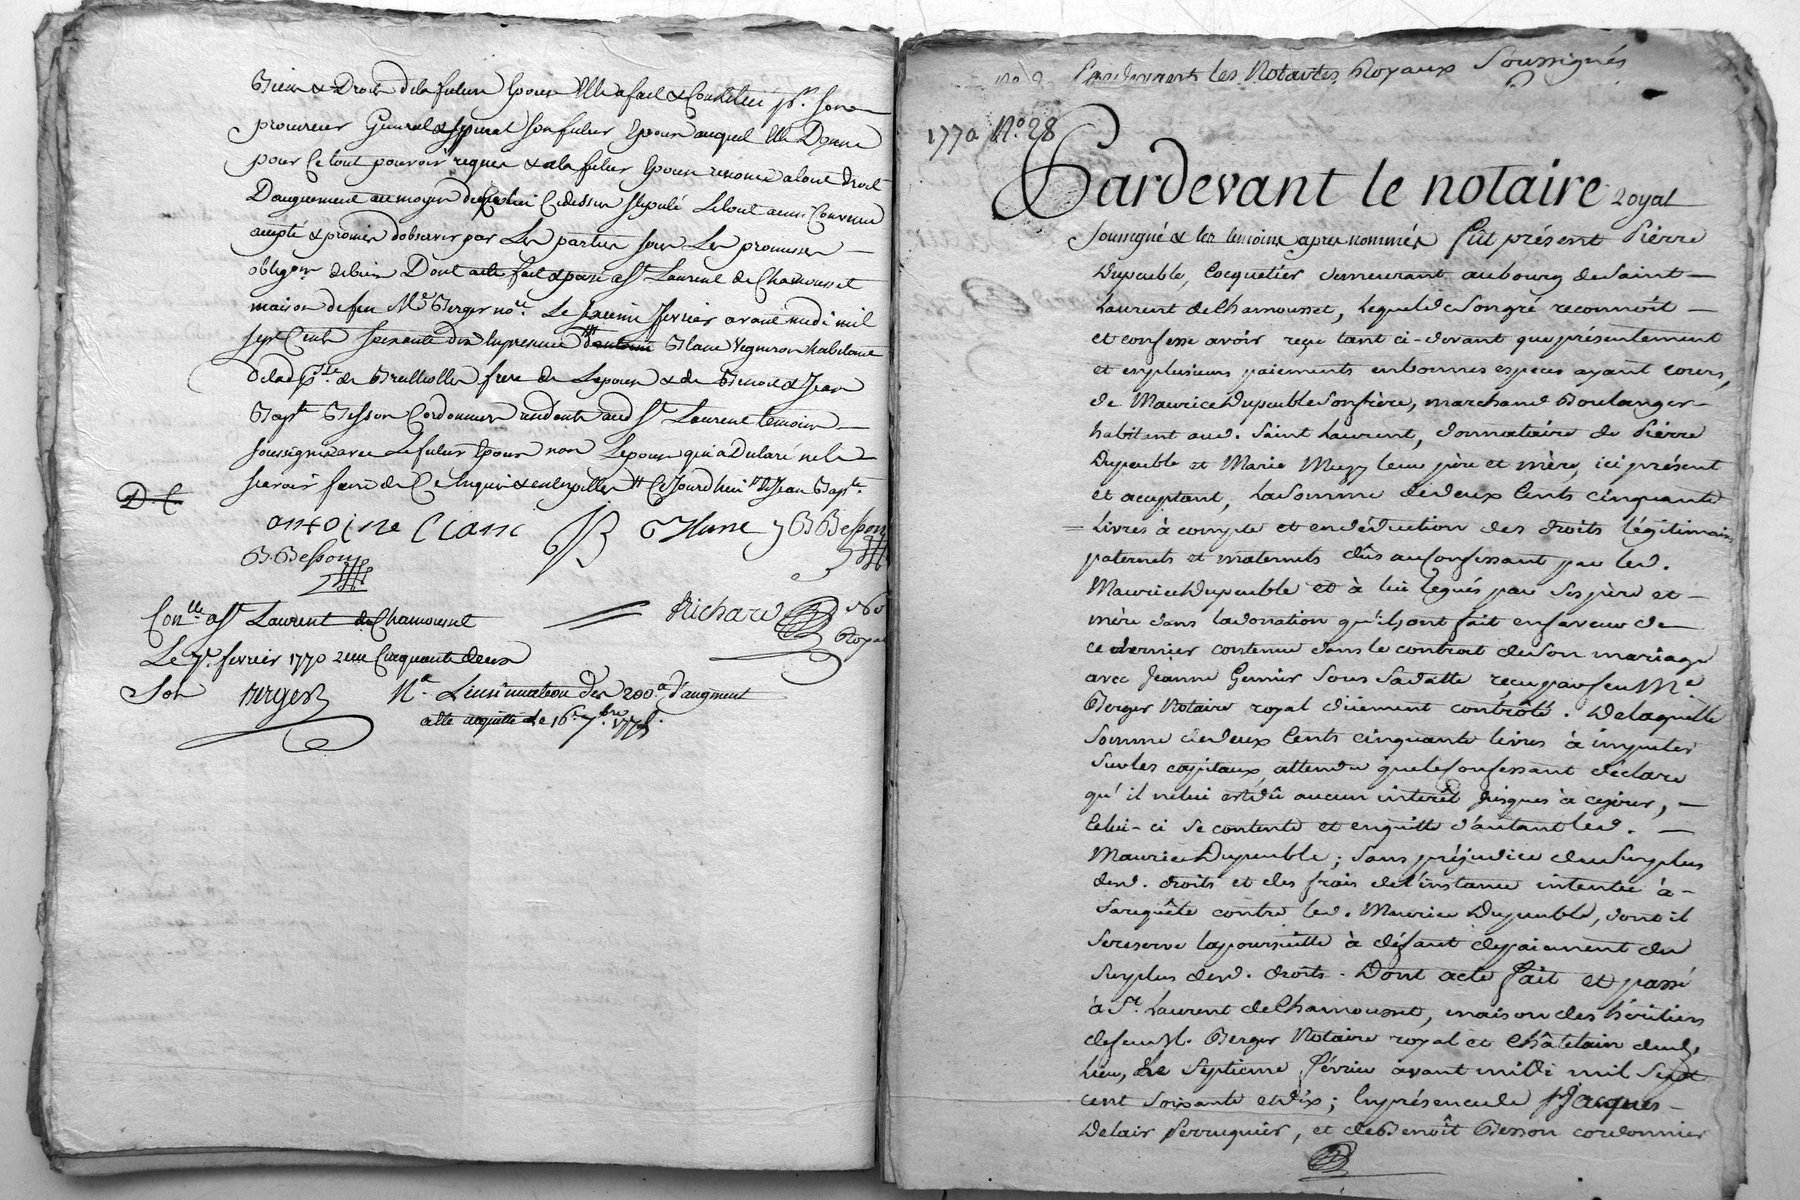 Biens & Droits de la future Epouse Elle a fait & Constitué pr. son
procureur General & special son futur Epoux auquel Elle Donne
pour Ce tout pouvoir requis & a la future Epouse renoncé a tout droit
Daugment au moyen de Celui Cidessus stipulé Le tout ainsi Convenu
accepté & promis dobserver par Les parties sous Les promesses
obligon. de biens Dont acte fait & passé a St. Laurent de Chamousset
maison de feu Me. Berger nore. Le sixieme fevrier avant midi mil
sept Cent soixante dix En presence Blanc Vigneron habitant
de lad. psse. de Brullioles frere de Lepoux & de Benoit & Jean
Bapte. Besson Cordonniers residents aud. St. Laurent temoins
soussignés avec Le futur Epoux non Lepouse qui a Declaré ne le
scavoir faire de Ce Enquis & interpellés Ce Jourdhui Jean Bapte.
D. C.
antoine Clanc JB Blanc J B Besson
B. Besson
Conlle. a St. Laurent de Chamousset
Richard nore Royal
Le 7e. fevrier 1770 Reçu Cinquante deux
Sols Berger
Na. Linsinuation des 200 # d'augment
a été acquittée Le 16e. 7bre. 1775.
Pardevant les Notaires Royaux Soussignés
1770 No. 28
Pardevant le notaire Royal
soussigné & les temoins apres nommés fût présent Pierre
Dupeuble, Cocquetier demeurant au bourg de Saint
Laurent de Chamousset, lequel de son gré reconnoit
et confesse avoir reçu tant ci-devant que présentement
et en plusieurs paiements en bonnes especes ayant cours,
de Maurice Dupeuble son frère, marchand Boulanger
habitant aud. Saint Laurent, donnataire de Pierre
Dupeuble et Marie Muzy leur père et mère, ici présent
et acceptant, La somme de deux Cents cinquante
Livres à compte et en déduction des droits légitimaires
paternels et maternels dûs au Confessant par led.
Maurice Dupeuble et à lui legués par ses père et
mère dans la donation qu'ils ont fait en faveur de
ce dernier contenue dans le contrat de son mariage
avec Jeanne Gemier sous sa datte reçu par feu Me.
Berger Notaire royal dûement contrôlé. De laquelle
somme de deux Cents cinquante livres à imputer
sur les capitaux, attendu que le Confessant déclare
qu'il ne lui est dû aucun interêt jusques à ce jour,
Celui-ci se contente et en quitte d'autant led.
Maurice Dupeuble; sans préjudice du surplus
desd. droits et des frais de l'instance intentée à
sa requête contre led. Maurice Dupeuble, dont il
se reserve la poursuitte à défaut de paiement du
surplus desd. droits. Dont acte fait et passé
à St. Laurent de Chamousset, maison des héritiers
de feu M. Berger Notaire royal et Châtelain dud.
Lieu, Le Septieme février avant midi mil Sept
cent soixante et dix; En présence de Jacques
Delair Perruquier, et de Benoît Besson cordonnier